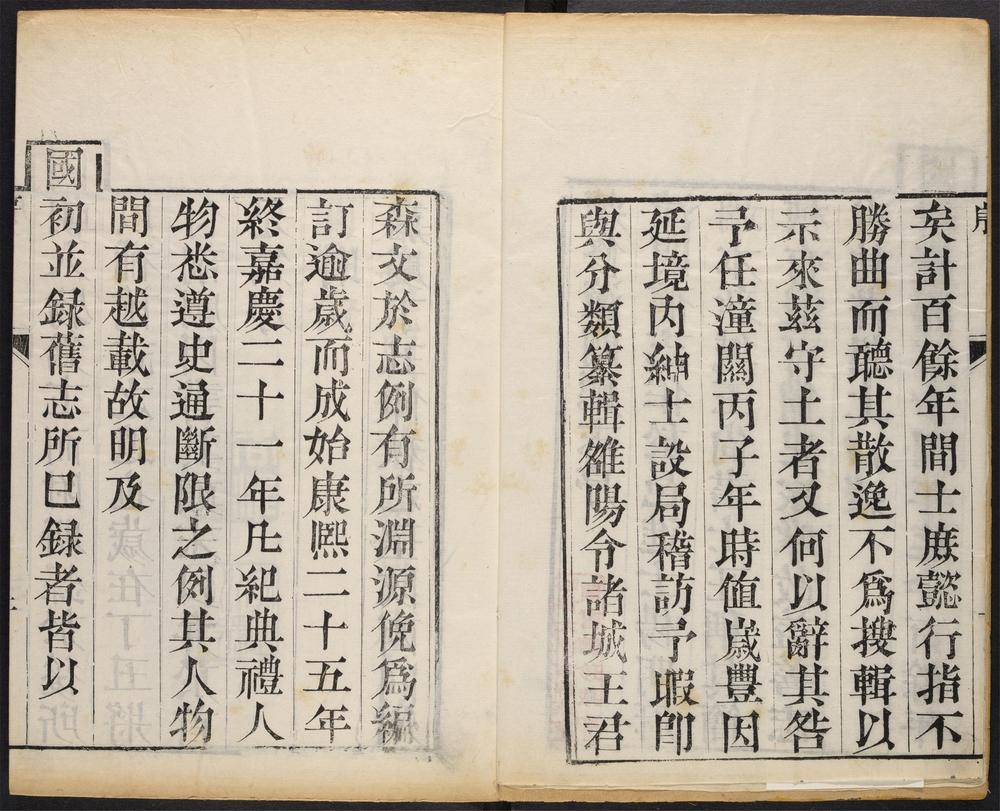 矣計百餘年間士庶懿行指不
勝曲而聽其散逸不爲搜輯以
示來茲守土者又何以辭其咎
予任潼關丙子年時值歲豐因
延境內紳士設局稽訪予暇卽
與分類纂輯雒陽令諸城王君
森文於志例有所淵源俛爲編
訂逾歲而成始康熙二十五年
終嘉慶二十一年凡紀典禮人
物悉遵史通斷限之例其人物
間有越載故明及
國初並録舊志所已録者皆以